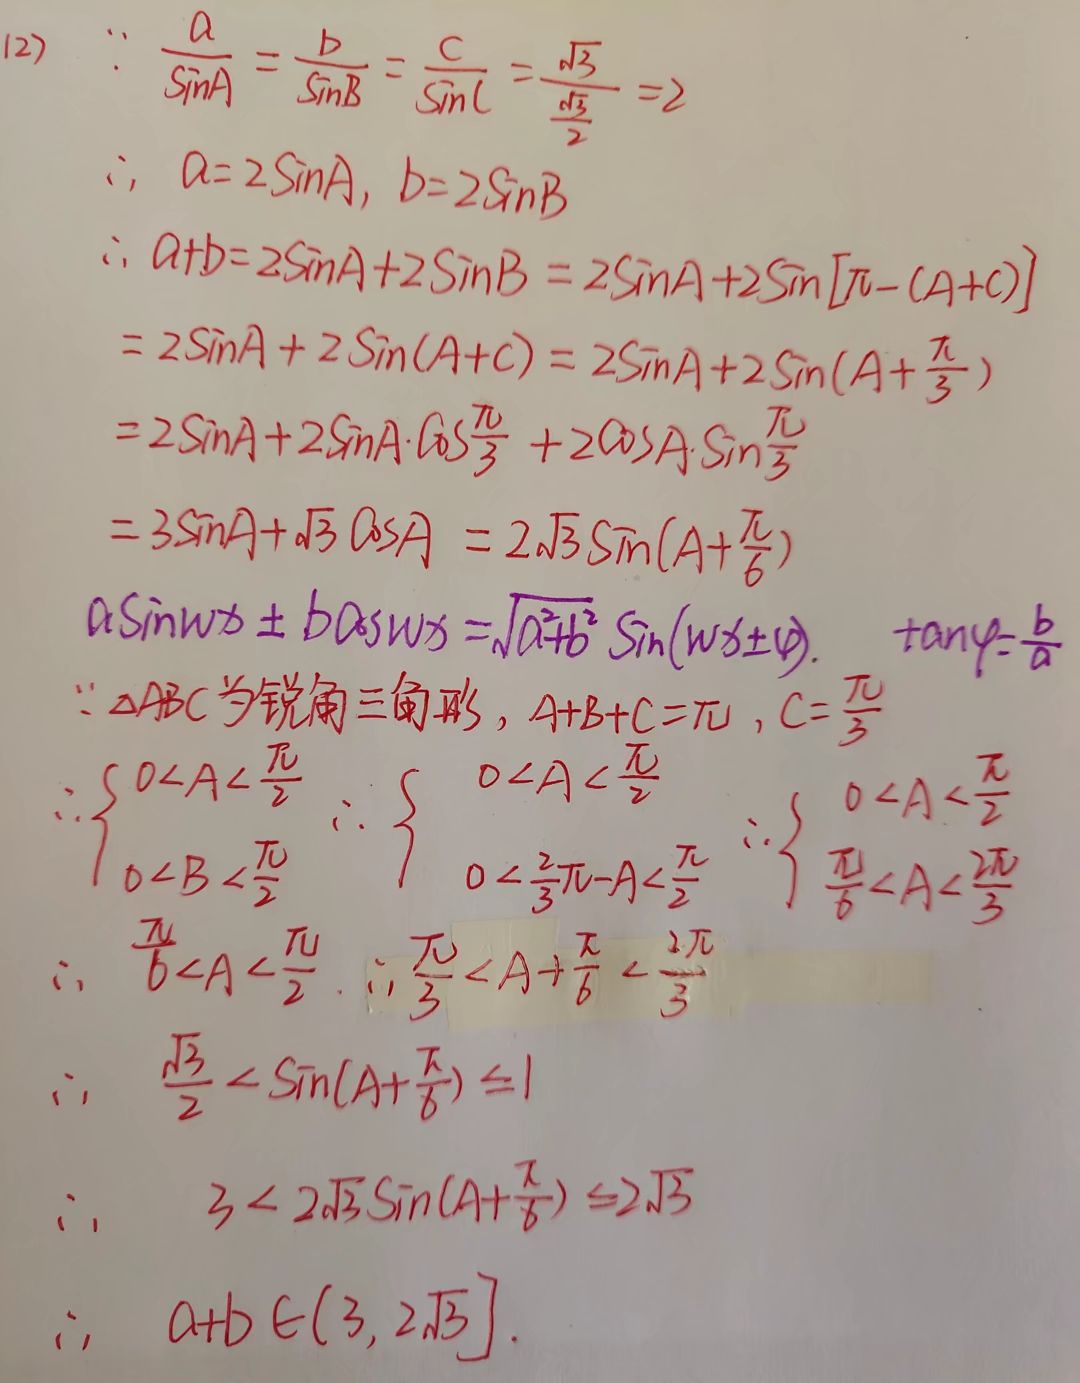 (2) ∵ a/sinA = b/sinB = c/sinC = √3/(√3/2) = 2
∴ a=2sinA, b=2sinB
∴ a+b=2sinA+2sinB = 2sinA+2sin[π-(A+C)]
= 2sinA + 2sin(A+C) = 2sinA+2sin(A+π/3)
= 2sinA+2sinA·cosπ/3 + 2cosA·sinπ/3
= 3sinA+√3cosA = 2√3sin(A+π/6)
asinwx ± bcoswx = √(a²+b²) sin(wx±φ). tanφ=b/a
∵ △ABC为锐角三角形, A+B+C=π, C=π/3
∴ { 0<A<π/2 ∴ { 0<A<π/2 ∴ { 0<A<π/2
0<B<π/2 0<2/3π-A<π/2 π/6<A<2π/3
∴ π/6<A<π/2. ∴ π/3<A+π/6<2π/3
∴ √3/2<sin(A+π/6)≤1
∴ 3<2√3sin(A+π/6)≤2√3
∴ a+b∈(3, 2√3].